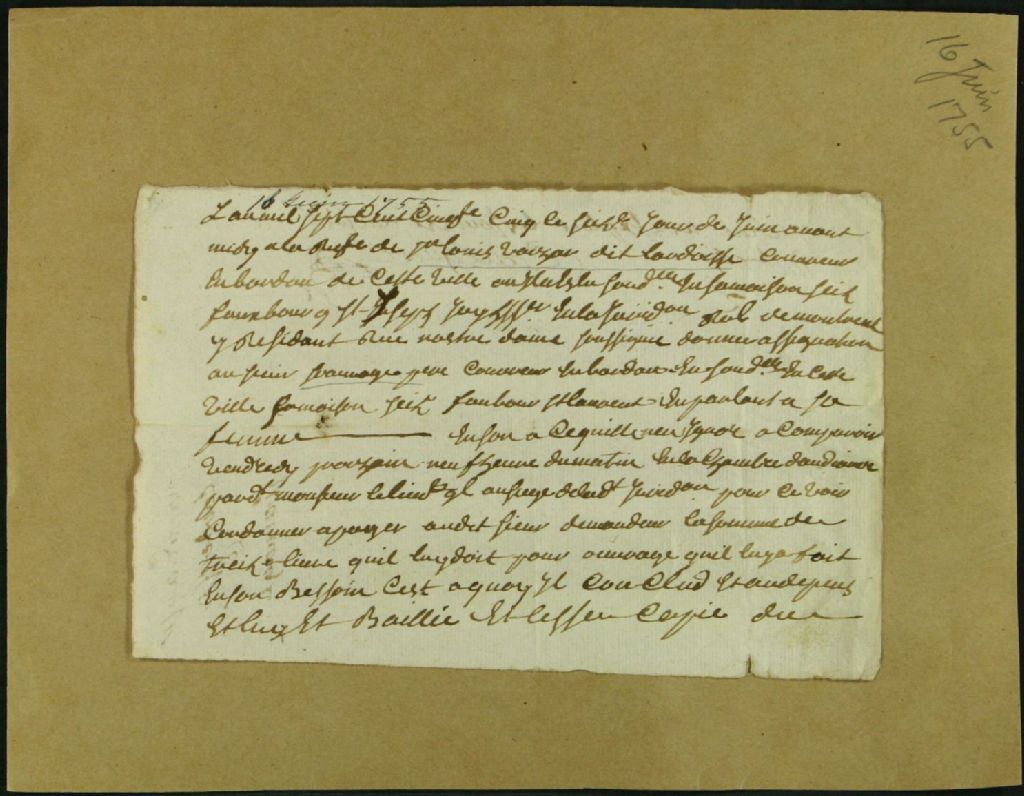 16 Juin
1755
16 Juin 1755
Lan mil sept Cent Cinqte Cinq le seize Jour de Juin avant
midy a la Reqte de Jn louis dit lardoisse Couvreur
En bardau de Cette Ville En sa maison seize
fauxbourg st Joseph En la Juridon de montreal
y Residant Rue nostre dame soussigné donner assignation
au sieur pere Couvreur En bardau En Cette
Ville sa maison seize faubour st laurent En parlant a sa
femme En son a Ce quil nen Ignore a Comparoir
Vendredy prochain neuf heure du matin En la Chambre daudiance
pardt monsieur le lieut gl au siege de ladt Juridon pour Ce voir
Condanner a payer audit sieur demandeur la somme de
treize livre quil luy doit pour ouvrage quil luy a fait
En son Bessoin Cest a quoy Il Conclud Et aux depens
Et luy Et Baillié Et lessé Copie du